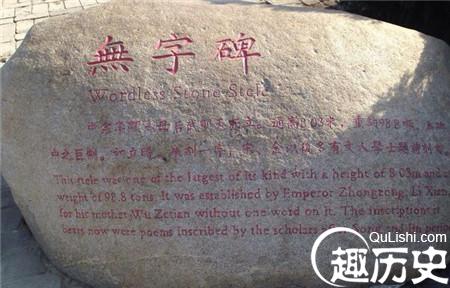 無字碑
Wordless Stone Stele
母后武则天所立。通高8.03米，重约98.8吨，
巨制。初立时，未刻一字，宋、金以后多有文人学士题
This stele was one of the largest of its kind with a height of 8.03m and a
weight of 98.8 tons. It was established by Emperor Zhongzong, Li Xian,
for his mother Wu Zetian without one word on it. The inscriptions it
bears now were poems inscribed by the scholars after Song and Jin
QuLishi.com
趣历史